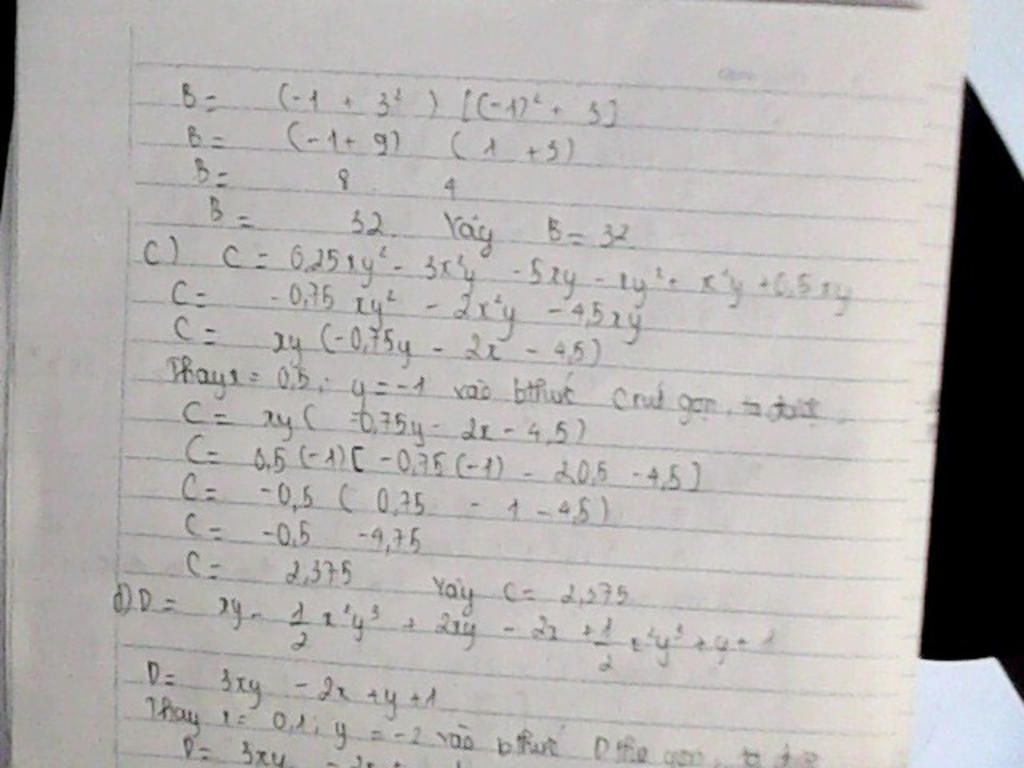 B = (-1 + 3²) [(-1)² + 3]
B = (-1 + 9) (1 + 3)
B = 8 4
B = 32 Vậy B = 32
c) C = 0,25xy² - 3x²y - 5xy - xy² + x²y + 0,5xy
C = -0,75 xy² - 2x²y - 4,5xy
C = xy (-0,75y - 2x - 4,5)
Thay x = 0,5; y = -1 vào bthức C rút gọn, ta được
C = xy ( -0,75y - 2x - 4,5)
C = 0,5 (-1) [ -0,75 (-1) - 2 0,5 - 4,5]
C = -0,5 ( 0,75 - 1 - 4,5)
C = -0,5 -4,75
C = 2,375 Vậy C = 2,375
d) D = xy - 1/2 x²y³ + 2xy - 2x + 1/2 x²y³ + y + 1
D = 3xy - 2x + y + 1
Thay x = 0,1; y = -2 vào bthức D thu gọn, ta được
D = 3xy